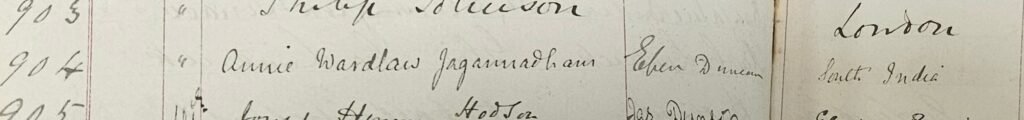 903 " Philip Johnson London
904 " Annie Wardlaw Jagannadham Eben Duncan South India
905 Henry Hodson Jas Dunlop